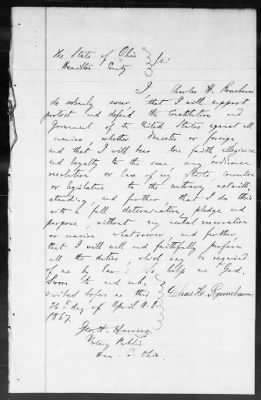 The State of Ohio
Hamilton County } ss:
I Charles H.
do solemnly swear, that I will support
protect and defend the Constitution and
Government of the United States against all
enemies whether domestic or foreign
and that I will bear true faith, allegiance
and loyalty to the same any ordinance
resolution or law of any State, convention
or legislature to the contrary notwith
standing, and further, that I do this
with a full determination, pledge and
purpose, without any mental reservation
or evasion whatsoever and further
that I will well and faithfully perform
all the duties, which may be required
of me by law: So help me God.
Sworn to and sub-
scribed before me this
26th day of April A.D.
1867
Chas. H.
Geo. H.
Notary Public
Ham. Co. Ohio.